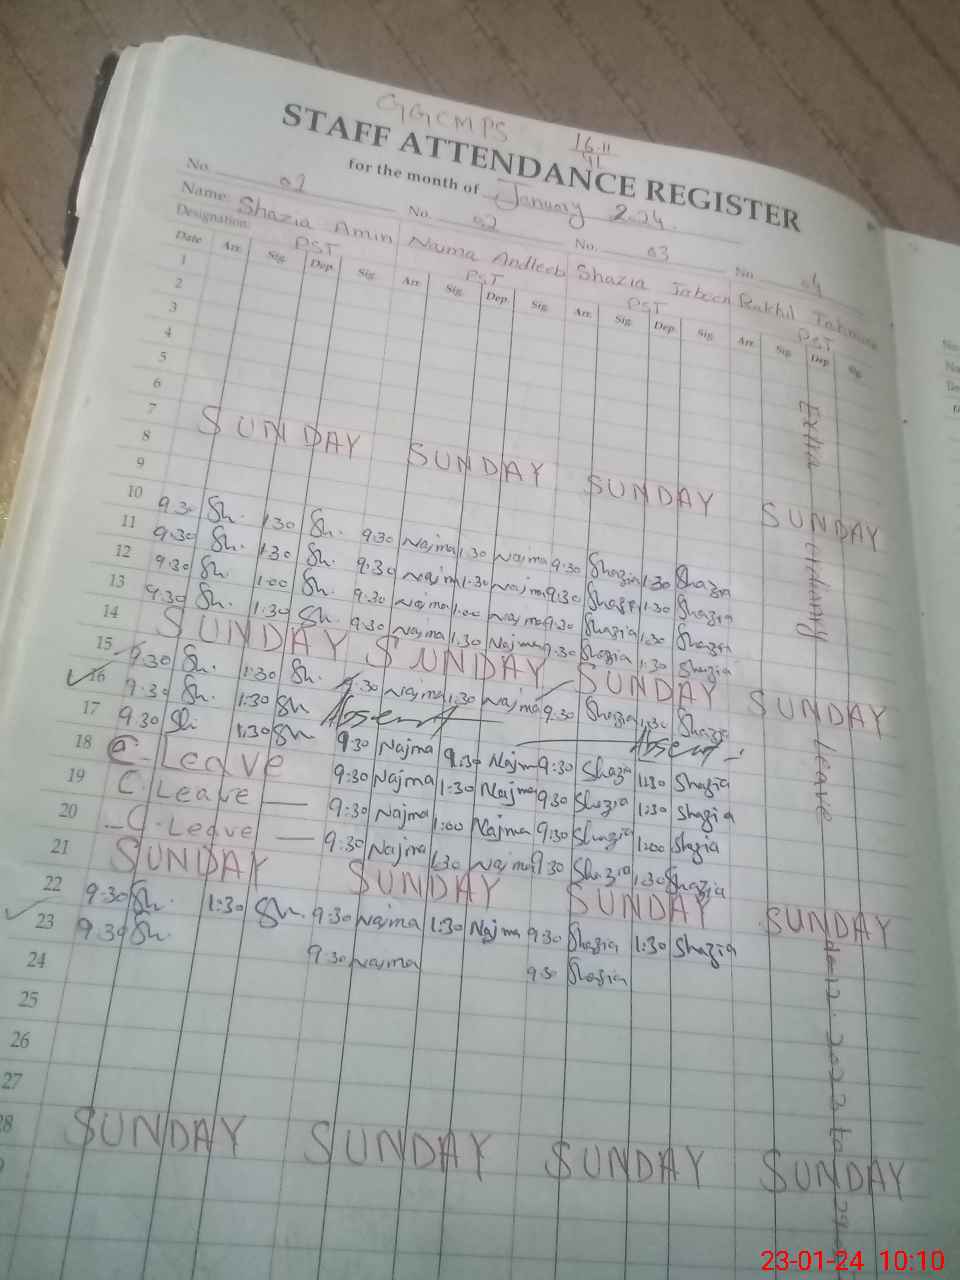 GGCMPS
STAFF ATTENDANCE REGISTER
16-11
91
for the month of January 2024.
No. 01 No. 02 No. 03 No. 04
Name: Shazia Amin Najma Andleeb Shazia Jabeen
Designation: PST PST PST PST
Date Arr. Sig. Dep. Sig. Arr. Sig. Dep. Sig. Arr. Sig. Dep. Sig. Arr. Sig. Dep. Sig.
1
2
3
4
5
6
7 SUNDAY SUNDAY SUNDAY SUNDAY
8
9
10 9.30 Sh. 1.30 Sh. 9.30 Najma 1.30 Najma 9.30 Shazia 1.30 Shazia
11 9.30 Sh. 1.30 Sh. 9.30 Najma 1.30 Najma 9.30 Shazia 1.30 Shazia
12 9.30 Sh. 1.00 Sh. 9.30 Najma 1.00 Najma 9.30 Shazia 1.30 Shazia
13 9.30 Sh. 1.30 Sh. 9.30 Najma 1.30 Najma 9.30 Shazia 1.30 Shazia
14 SUNDAY SUNDAY SUNDAY SUNDAY
15 9.30 Sh. 1.30 Sh. 9.30 Najma 1.30 Najma 9.30 Shazia 1.30 Shazia
16 9.30 Sh. 1.30 Sh Absent Absent
17 9.30 Sh 1.30 Sh 9:30 Najma 9:30 Najma 9:30 Shazia 1:30 Shazia
18 C. Leave 9:30 Najma 1:30 Najma 9:30 Shazia 1:30 Shazia
19 C. Leave 9:30 Najma 1:00 Najma 9:30 Shazia 1:00 Shazia
20 C. Leave 9:30 Najma 1.30 Najma 9.30 Shazia 1.30 Shazia
21 SUNDAY SUNDAY SUNDAY SUNDAY
22 9.30 Sh. 1:30 Sh. 9:30 Najma 1:30 Najma 9:30 Shazia 1:30 Shazia
23 9.30 Sh. 9:30 Najma 9:30 Shazia
24
25
26
27
28 SUNDAY SUNDAY SUNDAY SUNDAY
Extra ordinary Leave
23-01-24 10:10